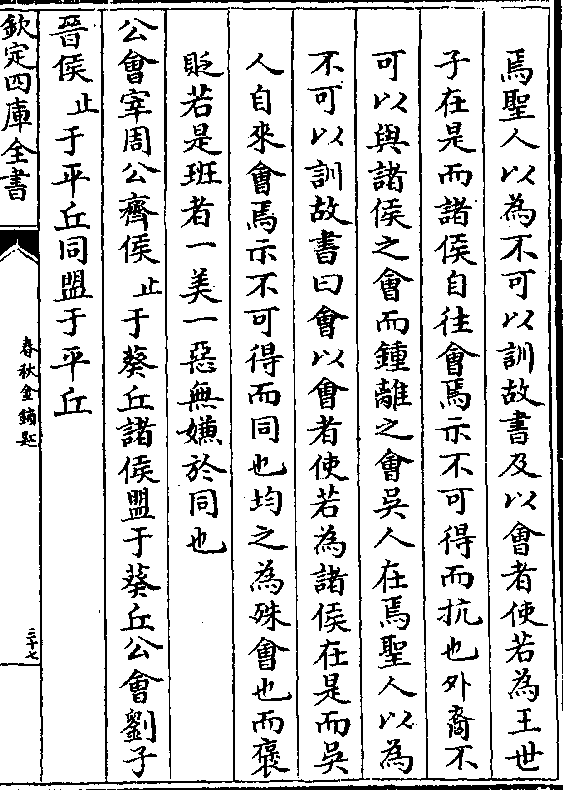 焉聖人以為不可以訓故書及以會者使若為王世
子在是而諸侯自往會焉示不可得而抗也外裔不
可以與諸侯之會而鍾離之會吳人在焉聖人以為
不可以訓故書曰會以會者使若為諸侯在是而吳
人自來會焉示不可得而同也均之為殊會也而褒
貶若是班者一美一惡無嫌於同也
公會宰周公齊侯止于葵丘諸侯盟于葵丘公會劉子
晉侯止于平丘同盟于平丘
欽定四庫全書
春秋金鎖匙
三十七